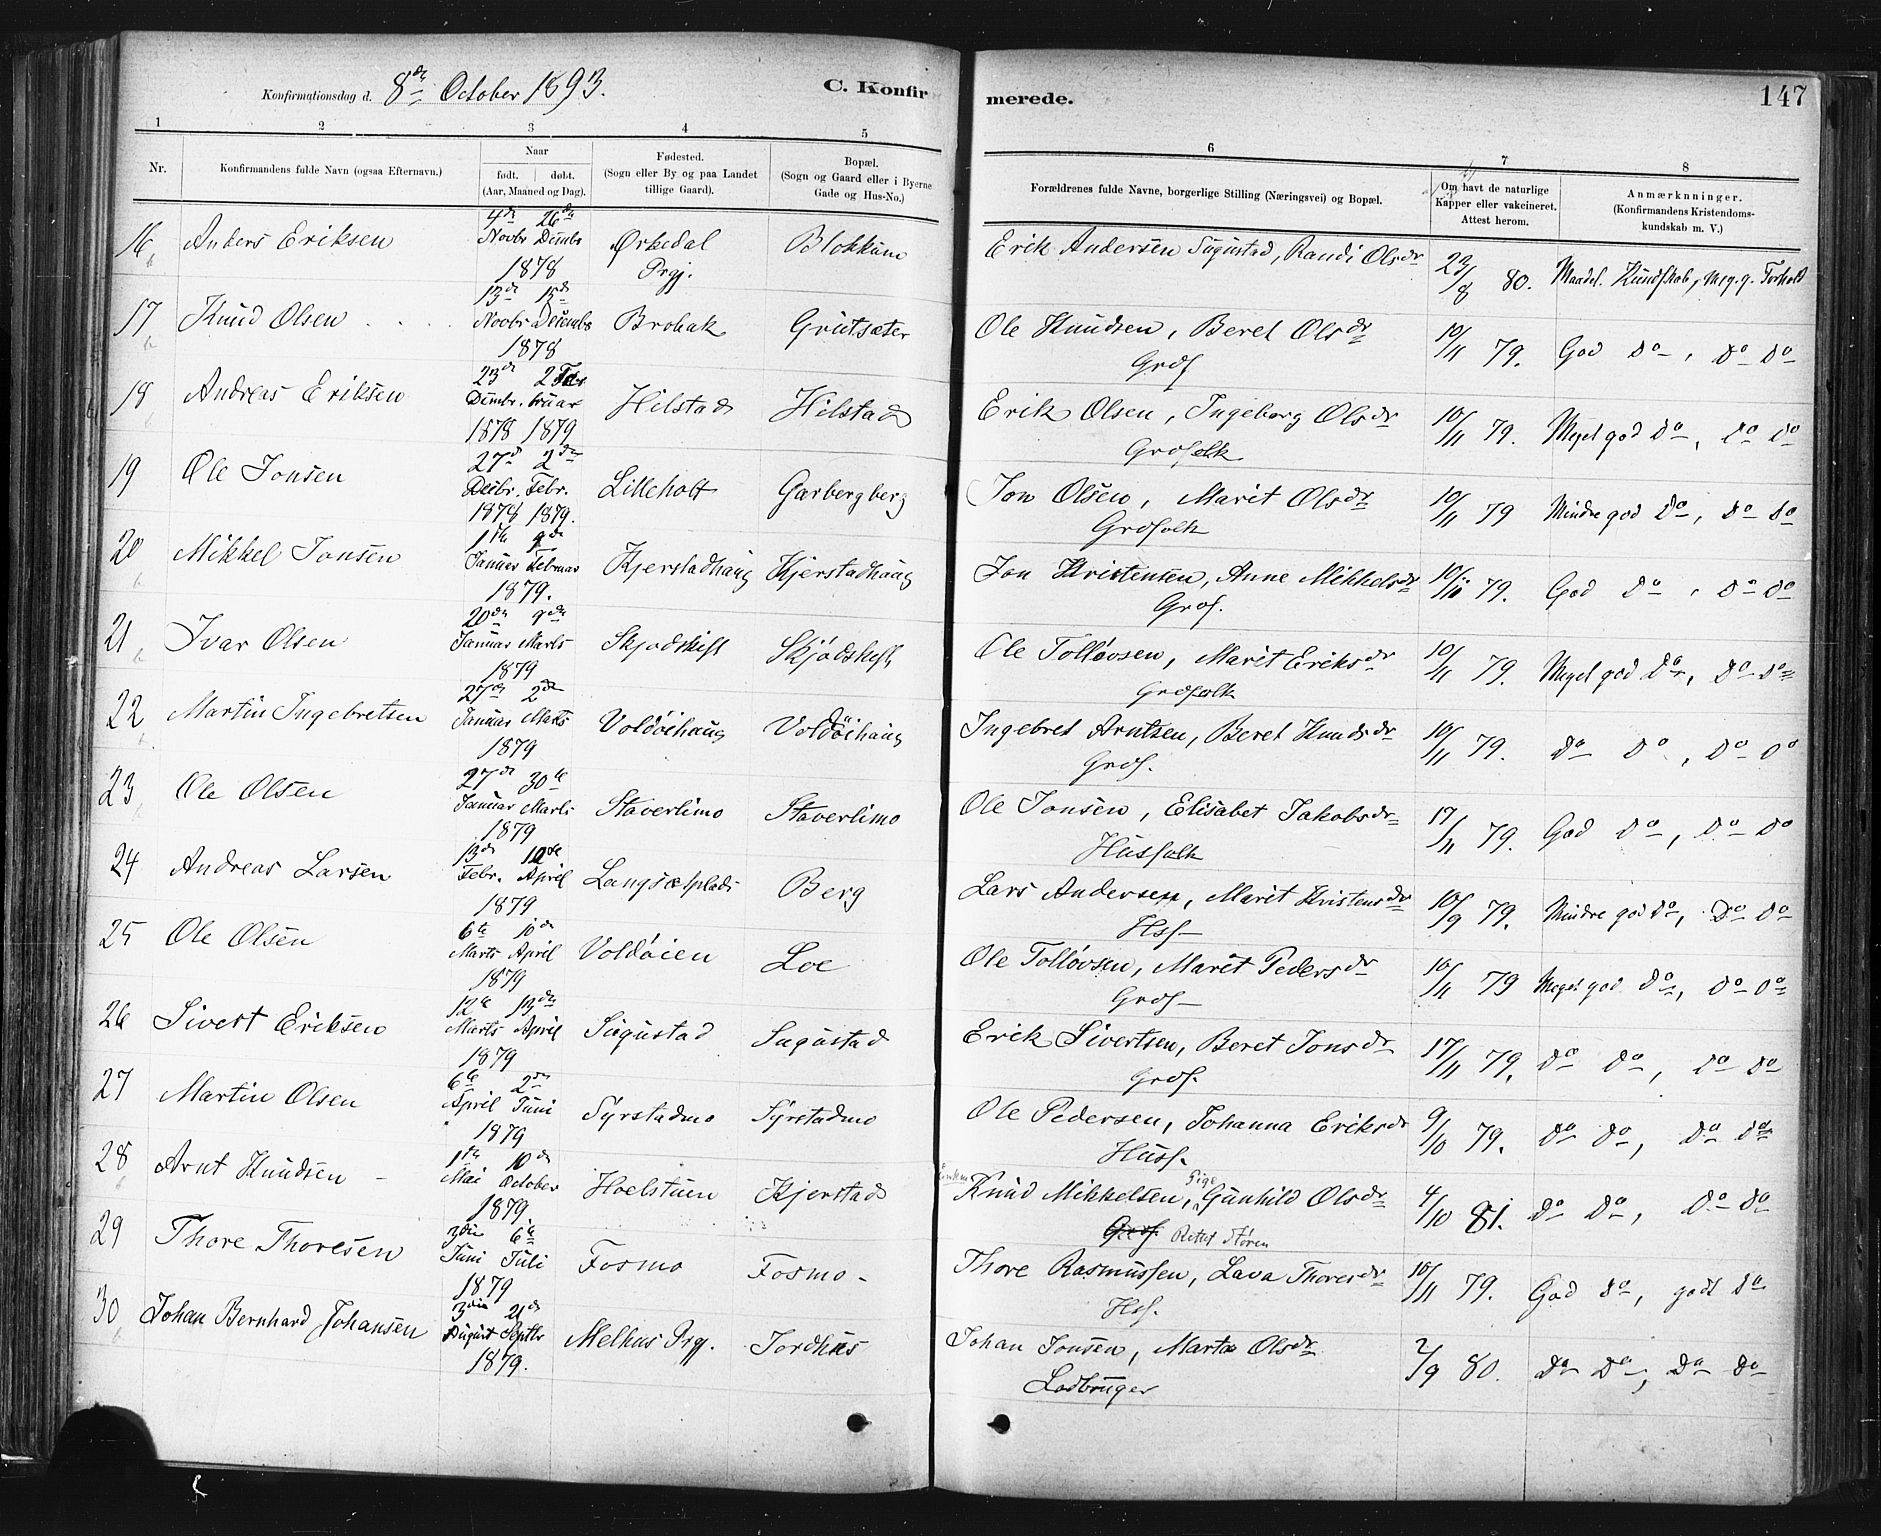 Konfirmationsdag d. 8de October 1893. C. Konfirmerede. 147
1 2 3 4 5 6 7 8
Nr. Konfirmandens fulde Navn (ogsaa Efternavn.) Naar født. døbt. (Aar, Maaned og Dag). Fødested. (Sogn eller By og paa Landet tillige Gaard). Bopæl. (Sogn og Gaard eller i Byerne Gade og Hus-No.) Forældrenes fulde Navne, borgerlige Stilling (Næringsvei) og Bopæl. Om havt de naturlige Kopper eller vakcineret. Attest herom. Anmærkninger. (Konfirmandens Kristendomskundskab m. V.)
16 Anders Eriksen 4de Novbr 26de Dembr 1878 Ørkedal Prgj. Blokkum Erik Andersen Sugustad, Randi Olsdr 23/8 80. Maadel. Kundskab, meg. g. Forhold
17 Knud Olsen 13de Novbr 15de Decembr 1878 Brobak Grutsæter Ole Knudsen, Beret Olsdr Grdf 10/11 79. God do, do do
18 Andreas Eriksen 23de Dembr. 2 Februar 1878 1879 Hilstad Hilstad Erik Olsen, Ingeborg Olsdr Grdfolk 10/11 79. Meget god do, do do
19 Ole Jonsen 27de Desbr. 2de Febr. 1878 1879. Lilleholt Garbergberg Jon Olsen, Marit Olsdr Grdfolk 10/11 79 Mindre god do, do do
20 Mikkel Jonsen 1ste Januar 9de Februar 1879. Kjerstadhaug Kjerstadhaug Jon Kristensen, Anne Mikkelsdr Grdf. 10/11 79. God do, do do
21 Ivar Olsen 20de Januar 9de Marts 1879 Skjødskift Skjødskift Ole Tolløvsen, Marit Eriksdr Grdfolk 10/11 79. Meget god do, do do
22 Martin Ingebretsen 27de Januar 2de Marts 1879 Voldøihaug Voldøihaug Ingebret Arntsen, Beret Knudsdr Grdf. 10/11 79. do do, do do
23 Ole Olsen 27de Januar 30te Marts 1879 Staverlimo Staverlimo Ole Jonsen, Elisabet Jakobsdr Husfolk 17/11 79. God do, do do
24 Andreas Larsen 13de Febr. 12te April 1879 Langsætplads Berg Lars Andersen, Marit Kristensdr Hsf 10/9 79. Mindre god do, do do
25 Ole Olsen 6te Marts 10de April 1879 Voldøien Loe Ole Tolløvsen, Marit Pedersdr Grdf 10/11 79 Meget god do, do do
26 Sivert Eriksen 12te Marts 13de April 1879 Sugustad Sugustad Erik Sivertsen, Beret Jonsdr Grdf. 17/11 79. do do, do do
27 Martin Olsen 6te April 2de Juni 1879 Syrstadmo Syrstadmo Ole Pedersen, Johanna Eriksdr Husf. 9/10 79. do do, do do
28 Arnt Knudsen 1ste Mai 10de October 1879 Hoelstuen Kjerstad Knud Mikkelsen, Pige Gunhild Olsdr Grdf. Støren 4/10 81. do do, do do
29 Thore Thoresen 3die Juni 6te Juli 1879 Fosmo Fosmo Thore Rasmussen, Lava Thoresdr Hsf. 10/11 79. God do, godt do
30 Johan Bernhard Johansen 3die August 21de Septbr 1879. Melhus Prgj. Jordhus Johan Jonsen, Marta Olsdr Ladbruger 2/9 80. do do, do do